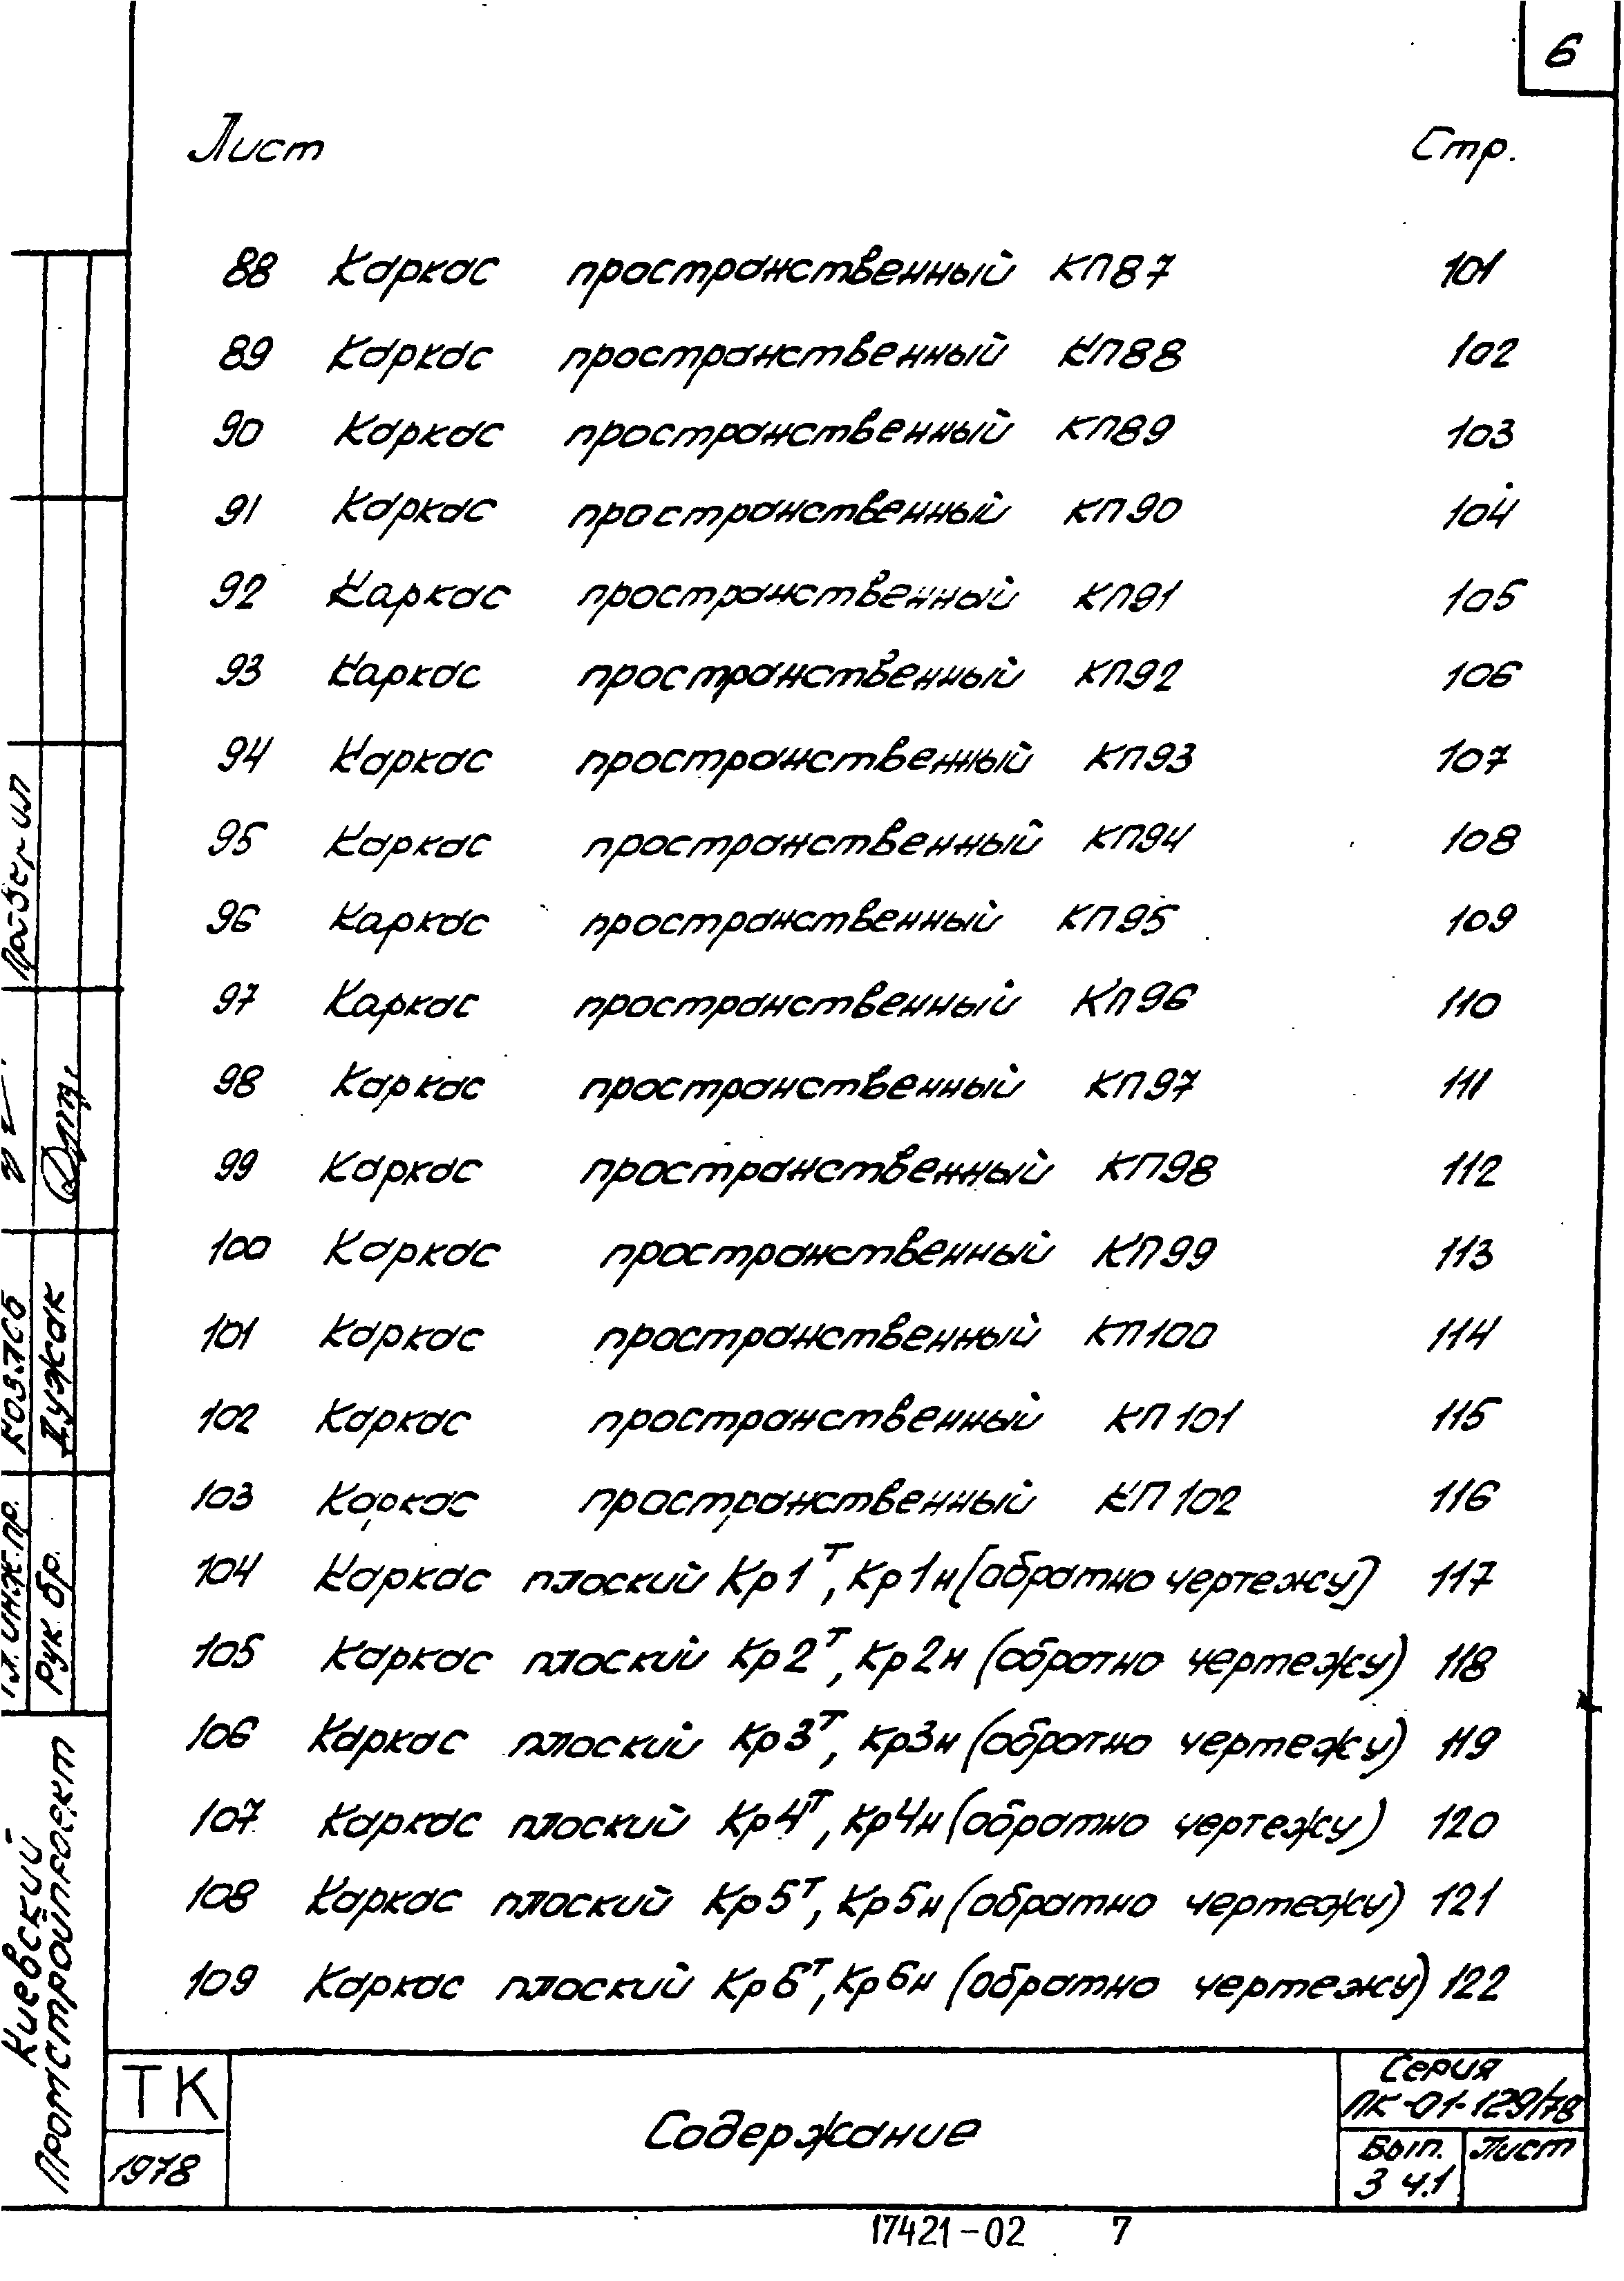 6
Лист Стр.
88 Каркас пространственный КП87 101
89 Каркас пространственный КП88 102
90 Каркас пространственный КП89 103
91 Каркас пространственный КП90 104
92 Каркас пространственный КП91 105
93 Каркас пространственный КП92 106
94 Каркас пространственный КП93 107
95 Каркас пространственный КП94 108
96 Каркас пространственный КП95 109
97 Каркас пространственный КП96 110
98 Каркас пространственный КП97 111
99 Каркас пространственный КП98 112
100 Каркас пространственный КП99 113
101 Каркас пространственный КП100 114
102 Каркас пространственный КП101 115
103 Каркас пространственный КП102 116
104 Каркас плоский Кр1т, Кр1н (обратно чертежу) 117
105 Каркас плоский Кр2т, Кр2н (обратно чертежу) 118
106 Каркас плоский Кр3т, Кр3н (обратно чертежу) 119
107 Каркас плоский Кр4т, Кр4н (обратно чертежу) 120
108 Каркас плоский Кр5т, Кр5н (обратно чертежу) 121
109 Каркас плоский Кр6т, Кр6н (обратно чертежу) 122
Киевский
Промстройпроект
Гл. инж. пр.
Рук. бр. Дужак
ТК
1978
Содержание
Серия
ПК-01-129/78
Вып. Лист
3 ч.1
17421-02 7